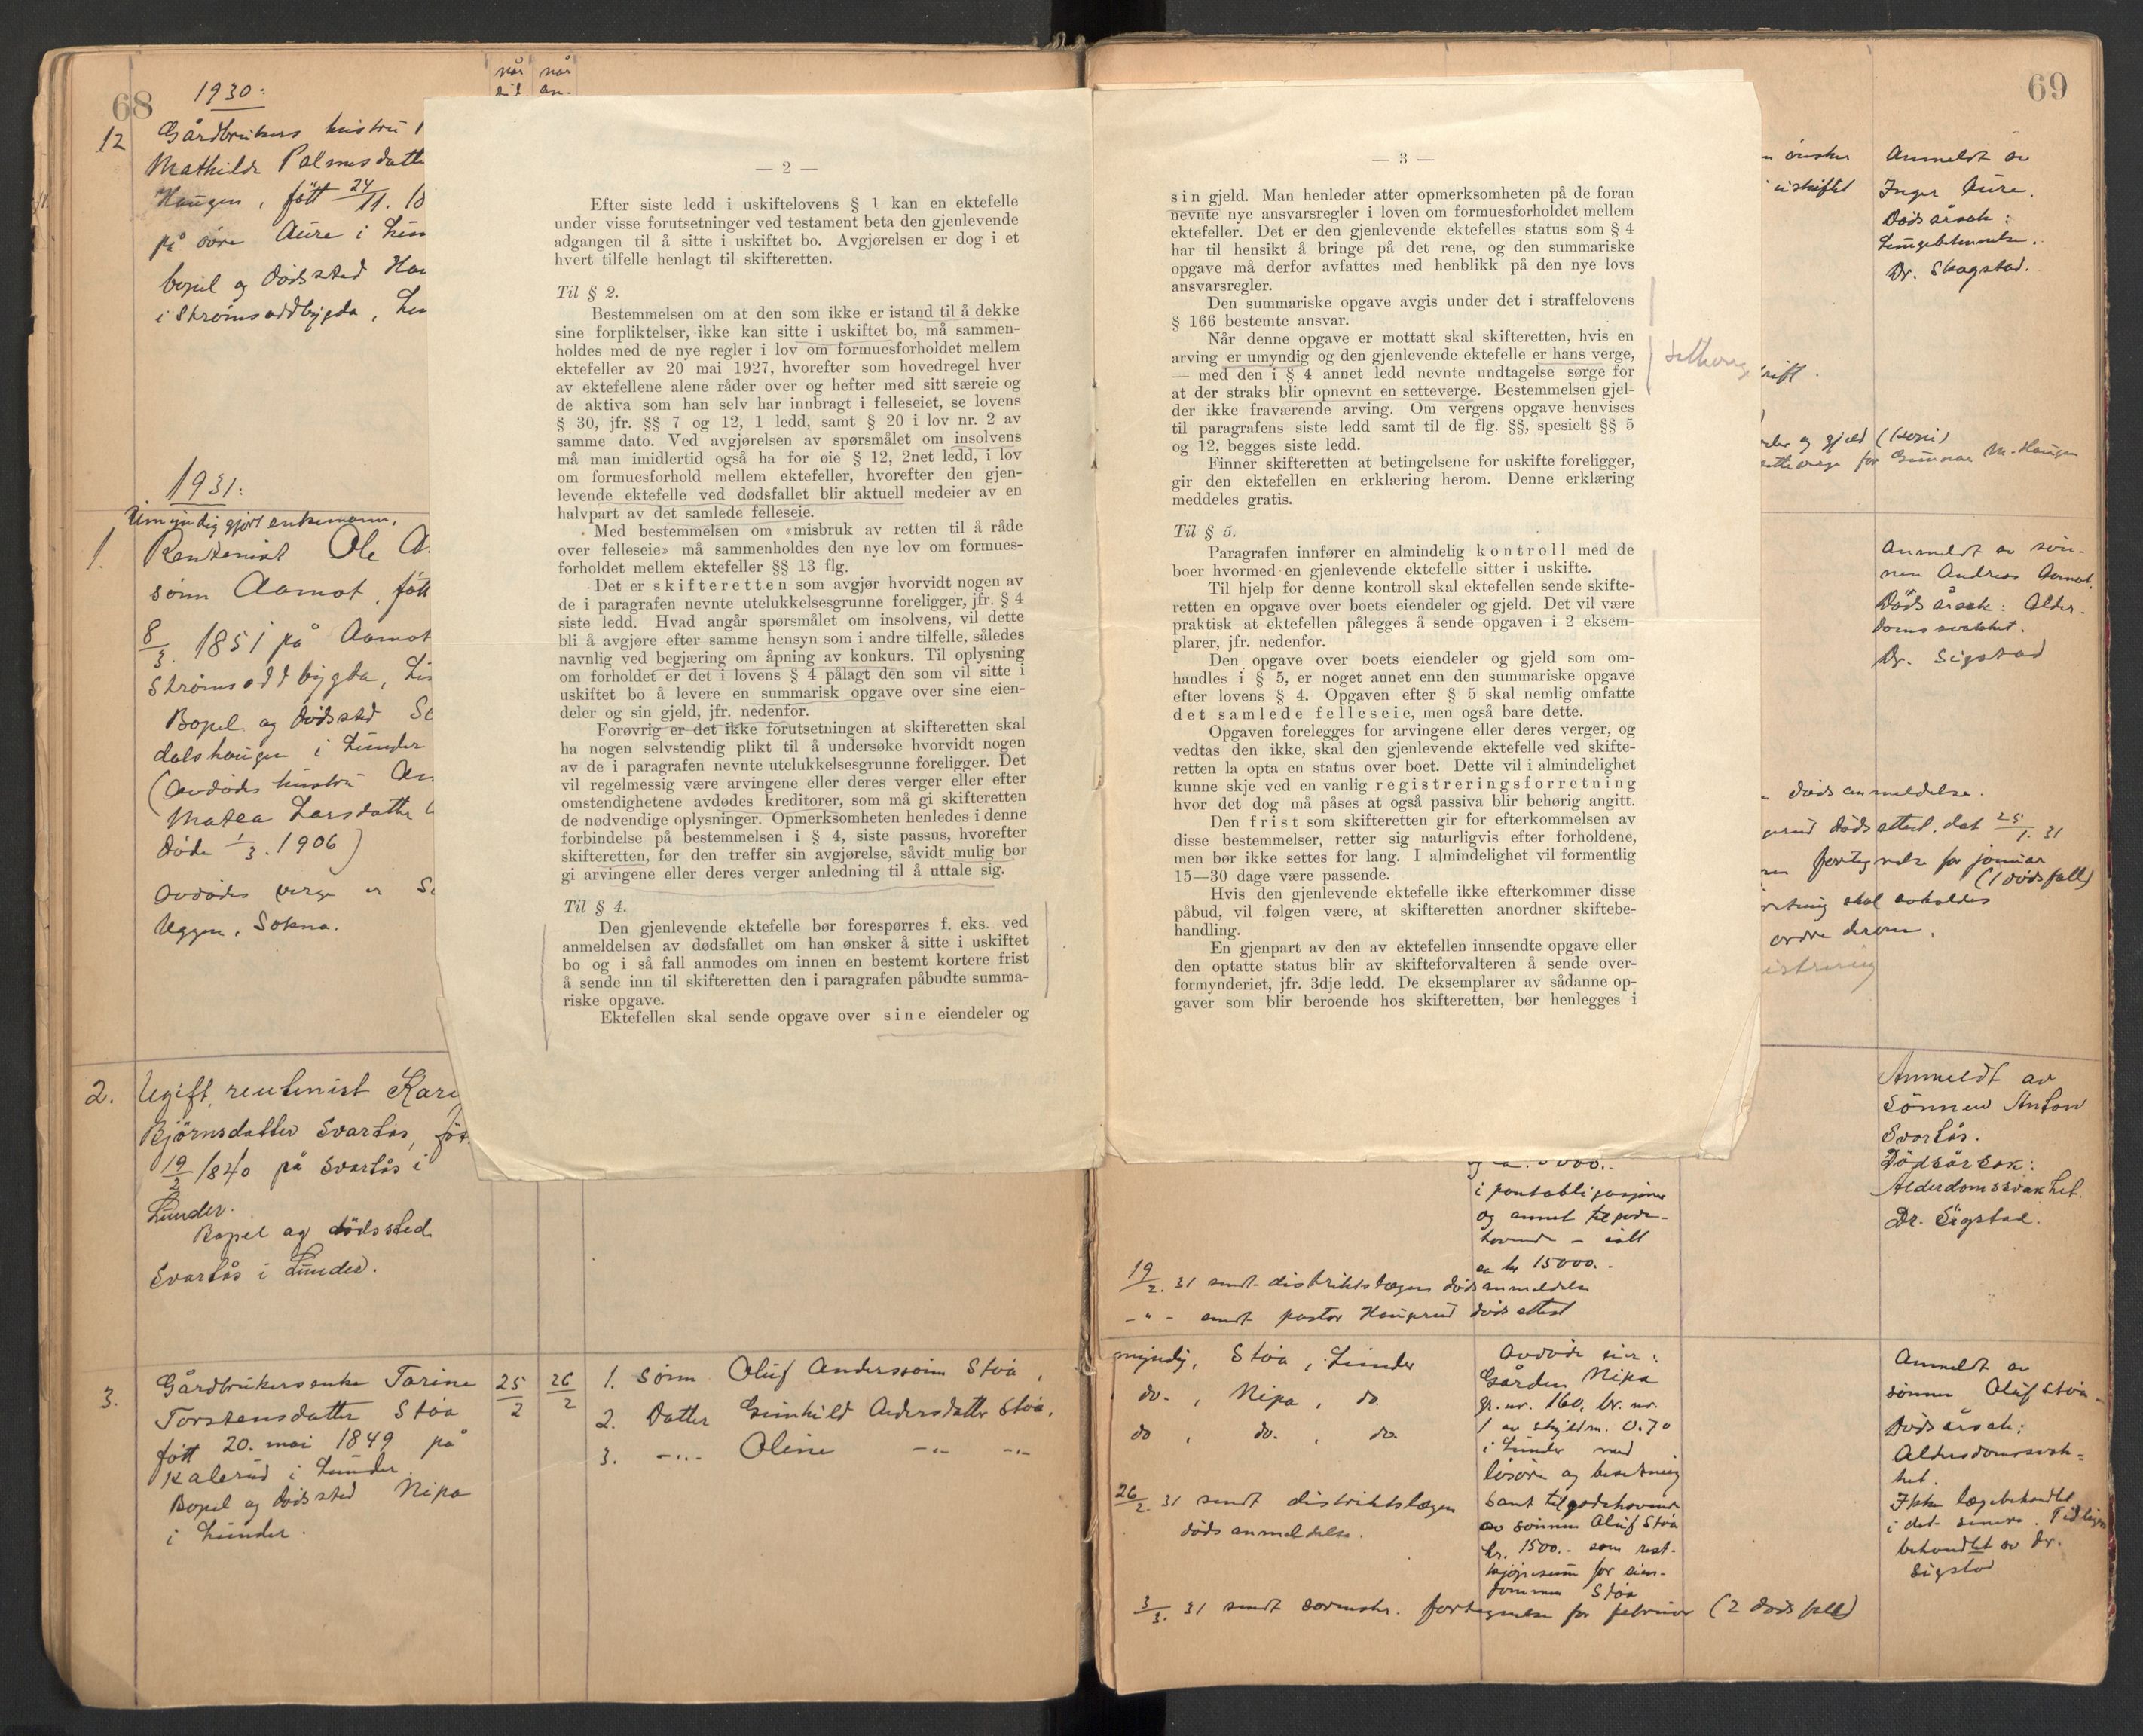 68
1930:
når når
12 Gårdbrukers hustru
Mathilde Palmesdatte
Haugen, født 24/11. 18
på øvre Aure i
bopel og dødsted
i Strømsoddbygda,
1931:
Umyndig gjort enkemann.
1. Rentenist Ole
sønn Aamot, født
8/3. 1851 på Aamot
Strømsoddbygda,
Bopel og dødsted
dalshaugen i Lunder
(Avdødes hustru
Matea Larsdatter
døde 1/3. 1906)
Avdødes verge er
Uggen, Sokna.
2. Ugift, rentenist Kari
Bjørnsdatter Svartås,
19/2 1840 på Svartås i
Lunder.
Bopel og dødssted
Svartås i Lunder.
3. Gårdbrukersenke Torine 25/2 26/2 1. Sønn Oluf Anderssønn Stóa,
Torstensdatter Stóa 2. Datter Gunhild Andersdatter Stóa,
født 20. mai 1849 på 3. -"- Oline -"- -"-
Kalerud i Lunder.
Bopel og dødssted Nipa
i Lunder.
— 2 —
Efter siste ledd i uskiftelovens § 1 kan en ektefelle
under visse forutsetninger ved testament beta den gjenlevende
adgangen til å sitte i uskiftet bo. Avgjørelsen er dog i et
hvert tilfelle henlagt til skifteretten.
Til § 2.
Bestemmelsen om at den som ikke er istand til å dekke
sine forpliktelser, ikke kan sitte i uskiftet bo, må sammen-
holdes med de nye regler i lov om formuesforholdet mellem
ektefeller av 20 mai 1927, hvorefter som hovedregel hver
av ektefellene alene råder over og hefter med sitt særeie og
de aktiva som han selv har innbragt i felleseiet, se lovens
§ 30, jfr. §§ 7 og 12, 1 ledd, samt § 20 i lov nr. 2 av
samme dato. Ved avgjørelsen av spørsmålet om insolvens
må man imidlertid også ha for øie § 12, 2net ledd, i lov
om formuesforhold mellem ektefeller, hvorefter den gjen-
levende ektefelle ved dødsfallet blir aktuell medeier av en
halvpart av det samlede felleseie.
Med bestemmelsen om «misbruk av retten til å råde
over felleseie» må sammenholdes den nye lov om formues-
forholdet mellem ektefeller §§ 13 flg.
Det er skifteretten som avgjør hvorvidt nogen av
de i paragrafen nevnte utelukkelsesgrunne foreligger, jfr. § 4
siste ledd. Hvad angår spørsmålet om insolvens, vil dette
bli å avgjøre efter samme hensyn som i andre tilfelle, således
navnlig ved begjæring om åpning av konkurs. Til oplysning
om forholdet er det i lovens § 4 pålagt den som vil sitte i
uskiftet bo å levere en summarisk opgave over sine eien-
deler og sin gjeld, jfr. nedenfor.
Forøvrig er det ikke forutsetningen at skifteretten skal
ha nogen selvstendig plikt til å undersøke hvorvidt nogen
av de i paragrafen nevnte utelukkelsesgrunne foreligger. Det
vil regelmessig være arvingene eller deres verger eller efter
omstendighetene avdødes kreditorer, som må gi skifteretten
de nødvendige oplysninger. Opmerksomheten henledes i denne
forbindelse på bestemmelsen i § 4, siste passus, hvorefter
skifteretten, før den treffer sin avgjørelse, såvidt mulig bør
gi arvingene eller deres verger anledning til å uttale sig.
Til § 4.
Den gjenlevende ektefelle bør forespørres f. eks. ved
anmeldelsen av dødsfallet om han ønsker å sitte i uskiftet
bo og i så fall anmodes om innen en bestemt kortere frist
å sende inn til skifteretten den i paragrafen påbudte summa-
riske opgave.
Ektefellen skal sende opgave over sine eiendeler og
— 3 —
sin gjeld. Man henleder atter opmerksomheten på de foran
nevnte nye ansvarsregler i loven om formuesforholdet mellem
ektefeller. Det er den gjenlevende ektefelles status som § 4
har til hensikt å bringe på det rene, og den summariske
opgave må derfor avfattes med henblikk på den nye lovs
ansvarsregler.
Den summariske opgave avgis under det i straffelovens
§ 166 bestemte ansvar.
Når denne opgave er mottatt skal skifteretten, hvis en
arving er umyndig og den gjenlevende ektefelle er hans verge,
— med den i § 4 annet ledd nevnte undtagelse sørge for
at der straks blir opnevnt en setteverge. Bestemmelsen gjel-
der ikke fraværende arving. Om vergens opgave henvises
til paragrafens siste ledd samt til de flg. §§, spesielt §§ 5
og 12, begges siste ledd.
Finner skifteretten at betingelsene for uskifte foreligger,
gir den ektefellen en erklæring herom. Denne erklæring
meddeles gratis.
Til § 5.
Paragrafen innfører en almindelig kontroll med de
boer hvormed en gjenlevende ektefelle sitter i uskifte.
Til hjelp for denne kontroll skal ektefellen sende skifte-
retten en opgave over boets eiendeler og gjeld. Det vil være
praktisk at ektefellen pålegges å sende opgaven i 2 eksem-
plarer, jfr. nedenfor.
Den opgave over boets eiendeler og gjeld som om-
handles i § 5, er noget annet enn den summariske opgave
efter lovens § 4. Opgaven efter § 5 skal nemlig omfatte
det samlede felleseie, men også bare dette.
Opgaven forelegges for arvingene eller deres verger, og
vedtas den ikke, skal den gjenlevende ektefelle ved skifte-
retten la opta en status over boet. Dette vil i almindelighet
kunne skje ved en vanlig registreringsforretning
hvor det dog må påses at også passiva blir behørig angitt.
Den frist som skifteretten gir for efterkommelsen av
disse bestemmelser, retter sig naturligvis efter forholdene,
men bør ikke settes for lang. I almindelighet vil formentlig
15—30 dage være passende.
Hvis den gjenlevende ektefelle ikke efterkommer disse
påbud, vil følgen være, at skifteretten anordner skiftebe-
handling.
En gjenpart av den av ektefellen innsendte opgave eller
den optatte status blir av skifteforvalteren å sende over-
formynderiet, jfr. 3dje ledd. De eksemplarer av sådanne op-
gaver som blir beroende hos skifteretten, bør henlegges i
69
ønsker
uskiftet
og gjeld (kopi)
for Gunnar M. Haugen
dødsanmeldelse.
dødsattest, dat 25/1. 31
fortegnelse for januar
(1 dødsfall)
skal avholdes
ordre derom.
Anmeldt av
Inger Aure.
Dødsårsak:
Lungebetennelse.
Dr. Skagstad.
Anmeldt av søn-
nen Andreas Aamot.
Dødsårsak: Alder-
domssvakhet.
Dr. Sigstad
Anmeldt av
Sønnen Anton
Svartås.
Dødsårsak:
Alderdomssvakhet.
Dr. Sigstad.
i pantobligasjoner
og annet tilgode-
havende - ialt
ca kr 15000.-
19/2. 31 sendt distriktslægen dødsanmeldelse
-"- sendt pastor Haugerud dødsattest
myndig, Stóa, Lunder
do. , Nipa, do.
do , do. , do.
26/2. 31 sendt distriktslægen
dødsanmeldelse.
Avdøde eier:
Gården Nipa
gr. nr. 160, br. nr.
1 av skyldm. 0.70
i Lunder med
løsøre og besetning
samt tilgodehavende
av sønnen Oluf Stóa
kr. 1500.- som rest-
kjøpesum for eien-
dommen Stóa
3/3. 31 sendt sorenskr. fortegnelse for februar (2 dødsfall)
Anmeldt av
sønnen Oluf Stóa
Dødsårsak:
Alderdomssvak-
het.
Ikke lægebehandlet
i det senere. Tidligere
behandlet av dr.
Sigstad